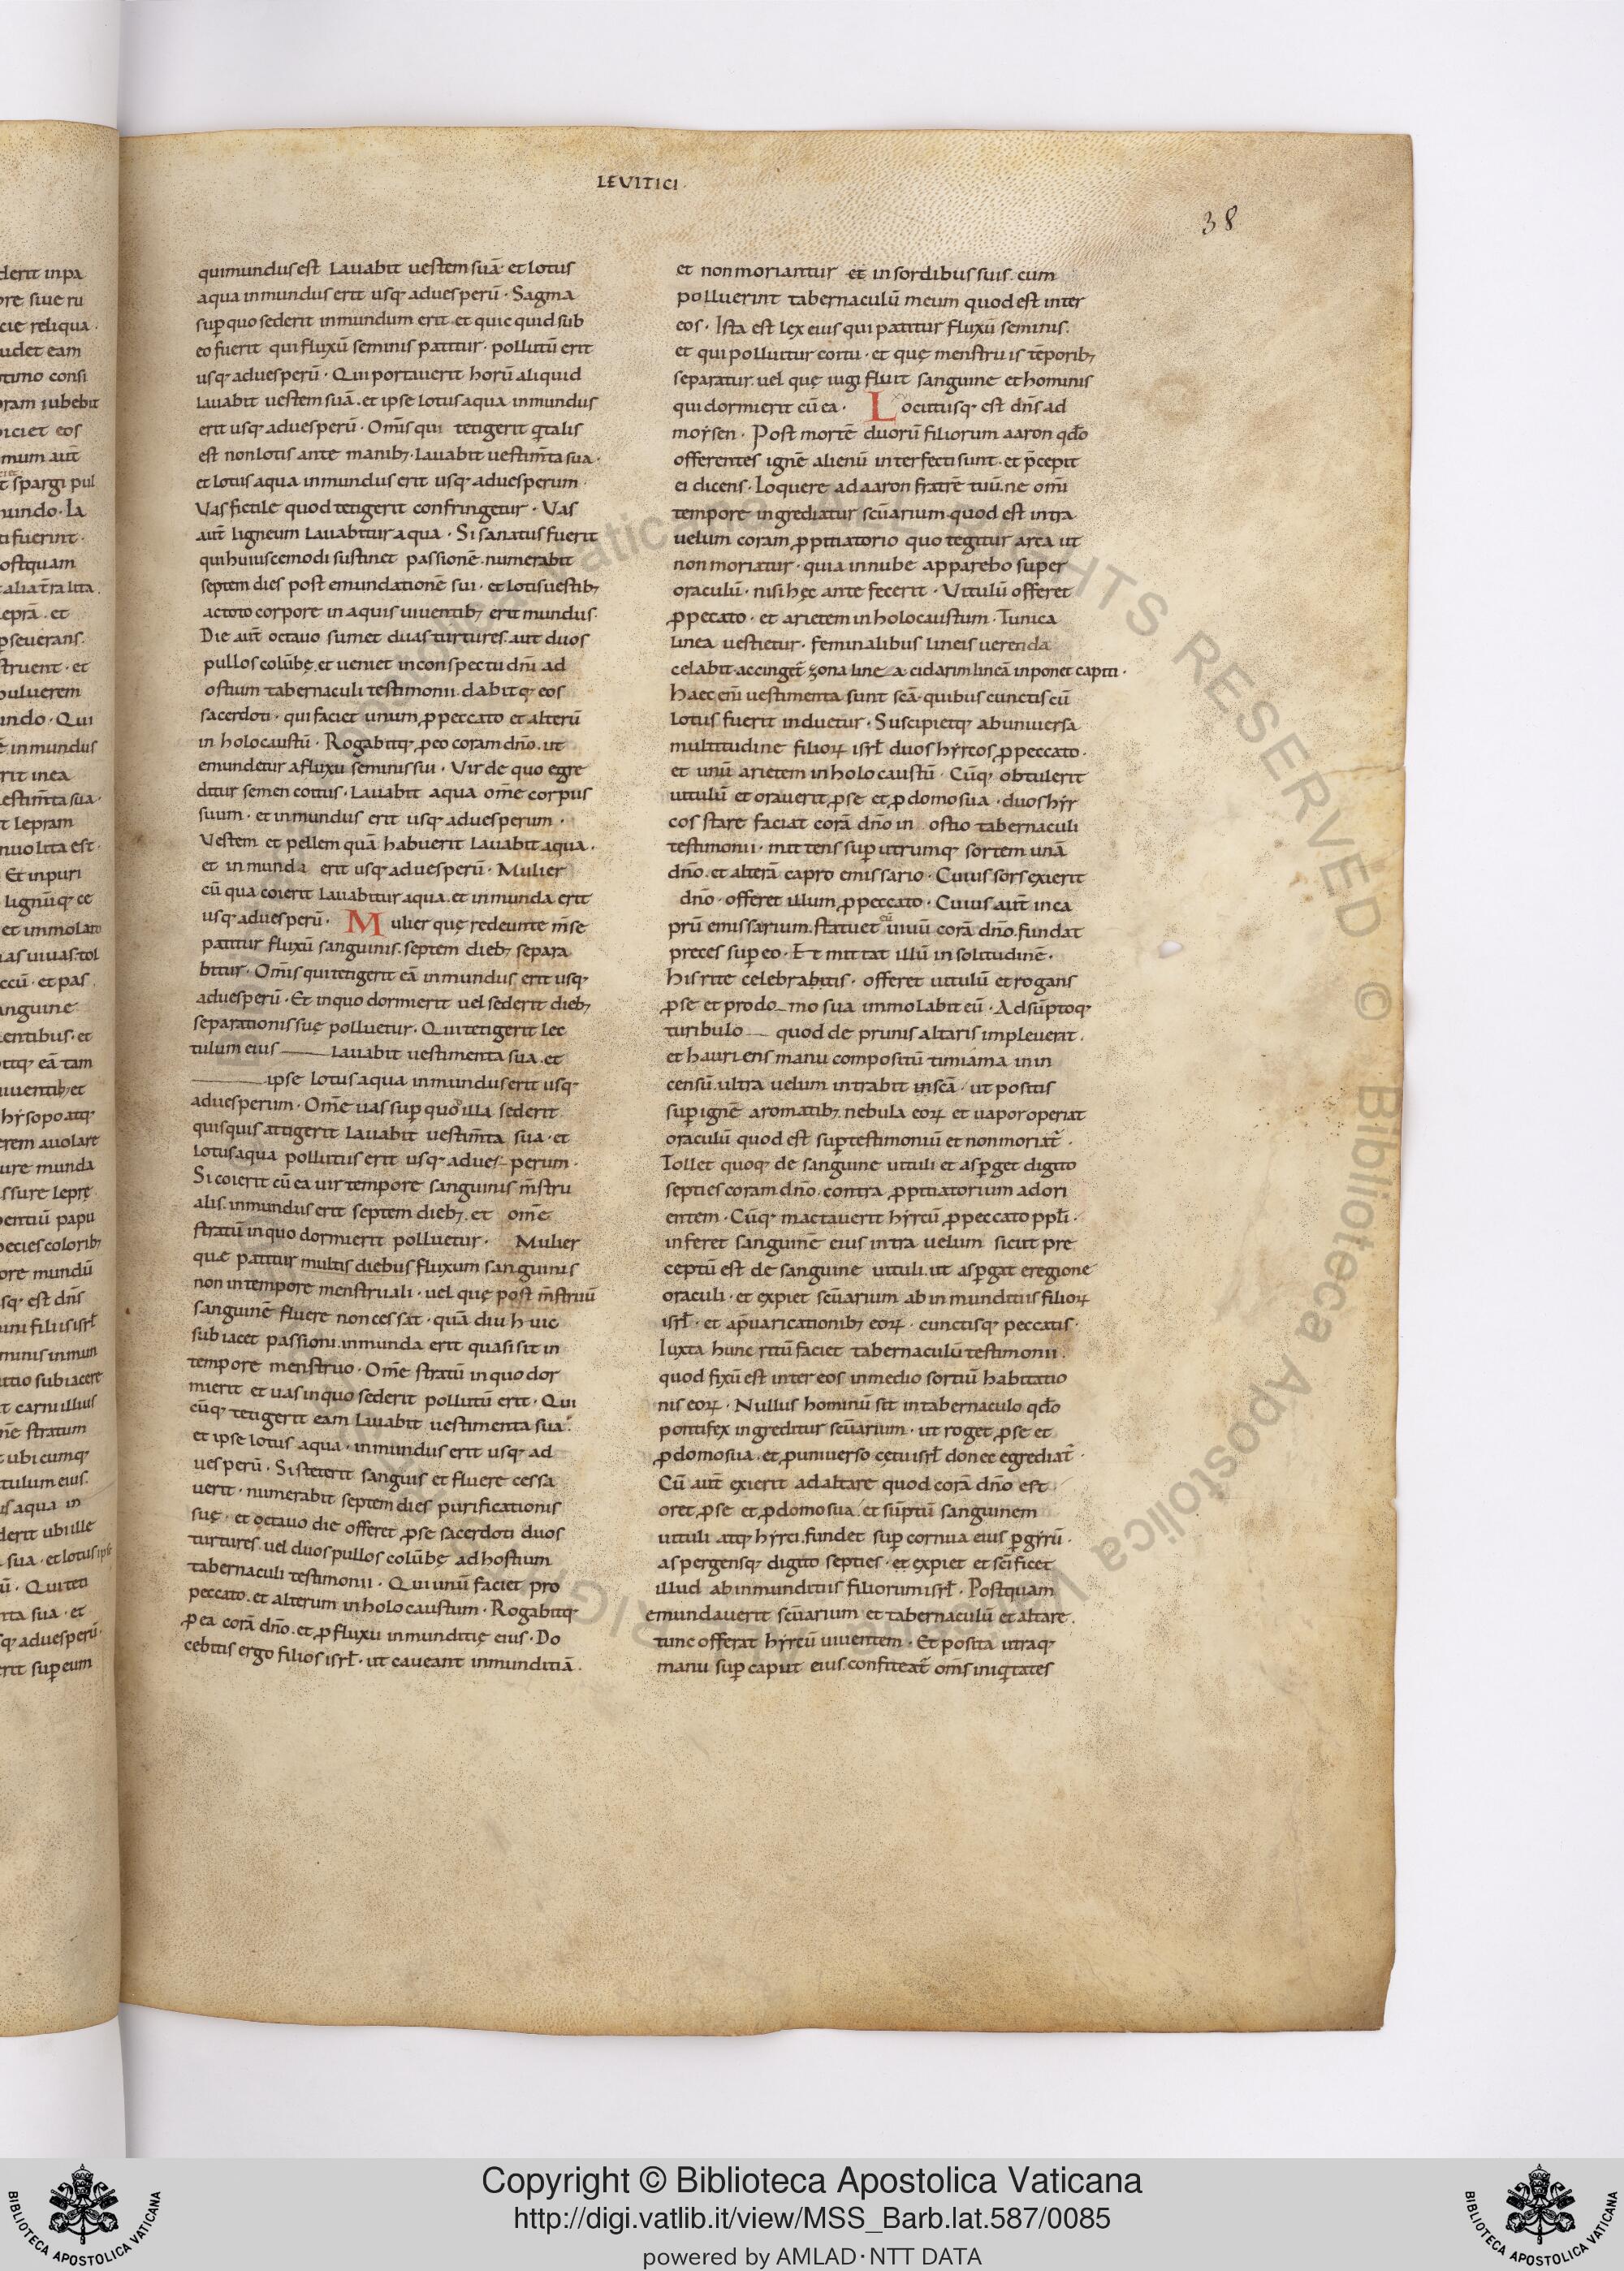 LEVITICI
38
qui mundus est Lavabit vestem suā· et lotus
aqua inmundus erit usq; ad vesperū· Sagma
sup̱ quo sederit inmundum erit· et quicquid sub
eo fuerit qui fluxū seminis patitur· pollutū erit
usq; ad vesperū· Qui portaverit horū aliquid
lavabit vestem suā· et ipse lotus aqua inmundus
erit usq; ad vesperū· Om̅is qui tetigerit q talis
est non lotis ante manib;· lavabit vestim̅ta sua·
et lotus aqua inmundus erit usq; ad vesperum·
Vas fictile quod tetigerit confringetur· Vas
aut̅ ligneum lavabitur aqua· Si sanatus fuerit
qui huiuscemodi sustinet passionē· numerabit
septem dies post emundationē sui· et lotis vestib;
ac toto corpore in aquis viventib; erit mundus·
Die aut̅ octavo sumet duas turtures· aut duos
pullos colūbę· et veniet in conspectu dn̅i ad
ostium tabernaculi testimonii· dabitq; eos
sacerdoti· qui faciet unum p̱ peccato et alterū
in holocaustū· Rogabitq; p̱ eo coram dn̅o· ut
emundetur a fluxu seminis sui· Vir de quo egre
ditur semen coitus· Lavabit aqua om̅e corpus
suum· et inmundus erit usq; ad vesperum·
Vestem et pellem quā habuerit lavabit aqua·
et inmunda erit usq; ad vesperū· Mulier
cū qua coierit lavabitur aqua· et inmunda erit
usq; ad vesperū· Mulier quę redeunte m̅se
patitur fluxū sanguinis· septem dieb; separa
bitur· Om̅is qui tetigerit eā inmundus erit usq;
ad vesperū· Et in quo dormierit vel sederit dieb;
separationis suę polluetur· Qui tetigerit lec
tulum eius lavabit vestimenta sua· et
ipse lotus aqua inmundus erit usq;
ad vesperum· Om̅e vas sup̱ quo illa sederit
quisquis attigerit lavabit vestim̅ta sua· et
lotus aqua pollutus erit usq; ad ves-perum·
Si coierit cū ea vir tempore sanguinis m̅stru
alis· inmundus erit septem dieb;· et om̅e
stratū in quo dormierit polluetur· Mulier
quæ patitur multis diebus fluxum sanguinis
non in tempore menstruali· vel quę post m̅struū
sanguinē fluere non cessat· quā diu huic
subiacet passioni· inmunda erit quasi sit in
tempore menstruo· Om̅e stratū in quo dor
mierit et vas in quo sederit pollutū erit· Qui
cūq; tetigerit eam lavabit vestimenta sua·
et ipse lotus aqua· inmundus erit usq; ad
vesperū· Si steterit sanguis et fluere cessa
verit· numerabit septem dies purificationis
suę· et octavo die offeret p̱ se sacerdoti duos
turtures· vel duos pullos colūbę ad hostium
tabernaculi testimonii· Qui unū faciet pro
peccato· et alterum in holocaustum· Rogabitq;
p̱ ea corā dn̅o· et p̱ fluxu inmunditię eius· Do
cebitis ergo filios isrł· ut caveant inmunditiā·
et non moriantur et in sordibus suis· cum
polluerint tabernaculū meum quod est inter
eos· Ista est lex eius qui patitur fluxū seminis·
et qui polluitur coitu· et quę menstruis tēporib;
separatur· vel quę iugi fluit sanguine et hominis
qui dormierit cū ea· Locutusq; est dn̅s ad
moysen· Post mortē duorū filiorum aaron qdo
offerentes ignē alienū interfecti sunt· et p̅cepit
ei dicens· Loquere ad aaron fratrē tuū· ne om̅i
tempore ingrediatur scūarium· quod est intra
velum coram p̱pitiatorio quo tegitur arca ut
non moriatur· quia in nube apparebo super
oraculū· nisi hęc ante fecerit· Vitulū offeret
p̱ peccato· et arietem in holocaustum· Tunica
linea vestietur· feminalibus lineis verenda
celabit· accinget̅ zona linea· cidarim lineā inponet capiti·
Haec eni̅ vestimenta sunt sc̅a· quibus cunctis cū
lotus fuerit induetur· Suscipietq; ab universa
multitudine filioꝝ isrł duos hyrcos p̱ peccato·
et unū arietem in holocaustū· Cūq; obtulerit
vitulū et oraverit p̱ se et p̱ domo sua· duos hyr
cos stare faciat corā dn̅o in ostio tabernaculi
testimonii· mittens sup̱ utrumq; sortem unā
dn̅o· et alterā capro emissario· Cuius sors exierit
dn̅o· offeret illum p̱ peccato· Cuius aut̅ in ca
prū emissarium· statuet eū vivū corā dn̅o· fundat
preces sup̱ eo· Et mittat illū in solitudinē·
His rite celebrabitis· offeret vitulū et rogans
p̱ se et pro do-mo sua immolabit eū· Adsūptoq;
turibulo quod de prunis altaris impleverat·
et hauriens manu compositū timiama in in
censū· ultra velum intrabit in sc̅a· ut positis
sup̱ ignē aromatib;· nebula eoꝝ et vapor operiat
oraculū quod est sup̱ testimoniū et non moriat̅·
Tollet quoq; de sanguine vituli et asp̱get digito
septies coram dn̅o· contra p̱pitiatorium ad ori
entem· Cūq; mactaverit hyrcū p̱ peccato ppl̅i·
inferet sanguinē eius intra velum sicut pre
ceptū est de sanguine vituli· ut asp̱gat e regione
oraculi· et expiet scūarium ab inmunditiis filioꝝ
isrł· et a p̅varicationib; eoꝝ· cunctisq; peccatis·
Iuxta hunc ritū faciet tabernaculū testimonii·
quod fixū est inter eos in medio sortiū habitatio
nis eoꝝ· Nullus hominū sit in tabernaculo qdo
pontifex ingreditur scūarium· ut roget p̱ se et
p̱ domo sua· et p̱ universo cętu isrł donec egrediat̅·
Cū aut̅ exierit ad altare quod corā dn̅o est
oret p̱ se et p̱ domo sua· et sūptū sanguinem
vituli atq; hyrci· fundet sup̱ cornua eius p̱ gyrū·
aspergensq; digito septies· et expiet et sc̅ificet
illud ab inmunditiis filiorum isrł· Postquam
emundaverit scūarium et tabernaculū et altare·
tunc offerat hyrcū viventem· Et posita utraq;
manu sup̱ caput eius· confiteat̅ om̅s iniqtates
Copyright © Biblioteca Apostolica Vaticana
http://digi.vatlib.it/view/MSS_Barb.lat.587/0085
powered by AMLAD·NTT DATA
BIBLIOTECA APOSTOLICA VATICANA
BIBLIOTECA APOSTOLICA VATICANA